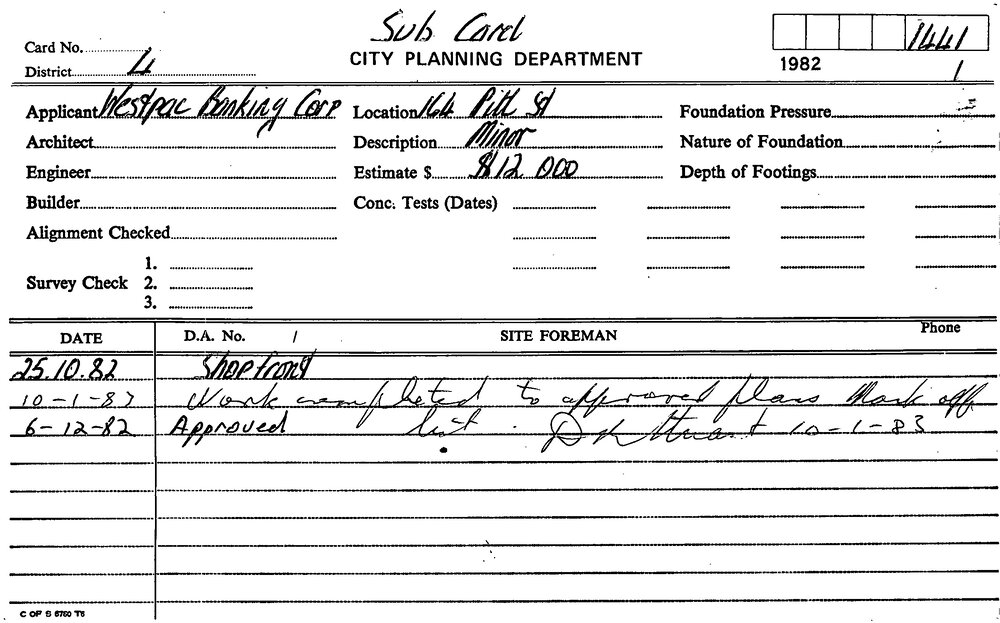 Sub Card
Card No.
CITY PLANNING DEPARTMENT
1441
District 4
1982
1
Applicant Westpac Banking Corp Location 164 Pitt St Foundation Pressure
Architect Description Minor Nature of Foundation
Engineer Estimate $ $12 000 Depth of Footings
Builder Conc. Tests (Dates)
Alignment Checked
1.
Survey Check 2.
3.
DATE D.A. No. / SITE FOREMAN Phone
25.10.82 Shopfront
10-1-83 Work completed to approved plans Mark off
6-12-82 Approved list. 10-1-83
C OF S 5760 T5